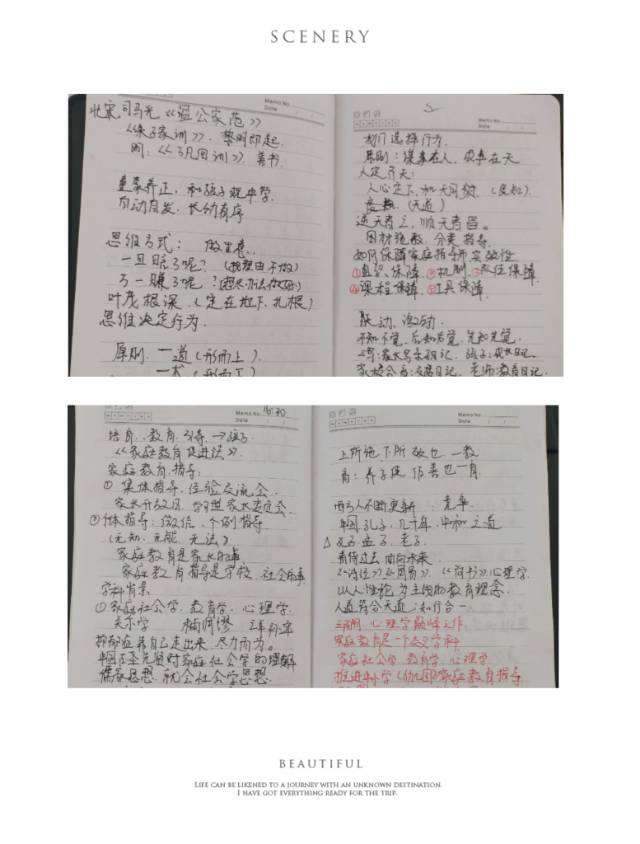 SCENERY
Memo No.
Date
北宋 司马光《温公家范》
《朱子家训》，黎明即起
周：《了凡四训》 善书
童蒙养正，和孩子
自动自发，长幼有序
思维方式：
一旦 了呢？（ 理由不做）
万一赚了呢？（想尽办法做好）
叶茂根深，（定在 下，扎根）
思维决定行为
原则：一道（形而上）
一术（形而下）
Memo No.
Date
我们选择行为
原则：谋事在人，成事在天
人定 天：
人心定下，和天同频，（良知）
（天道）
逆天者亡，顺天者昌。
因材施教，分类指导
如何保障家庭指导师实效性
① 保障，②机制，③ 位保障
④课程保障，⑤工具保障
联动、激励
不知不觉，后知后觉，先知先觉
家长写 日记，孩子：成长日记
家校 日记，老师：教育日记
Memo No. 16:30
Date
培育，教育，引导→孩子
《家庭教育促进法》
家庭教育指导：
①集体指导，经验交流会
家长开放日，学习型家长委员会
②个体指导：微信，个别指导
（无知、无能、无法）
家庭教育是家长的事
家庭教育指导是学校、社会的事
学科背景
①家庭社会学、教育学、心理学
关系学
抑郁症靠自己走出来，尽力而为。
中国古圣先贤对家庭社会学的理解
儒家思想，就会社会学思想
上所施下所效也 — 教
育：养子使作善也 — 育
Memo No.
Date
两千人不断更新 竞争
中国孔子，几千年，中和之道
孔子 孟子 老子
看待过去，面向未来
《诗经》《周易》，《尚书》心理学
以人性论为主线的教育理念
人道符合天道，知行合一
王阳明：心理学巅峰之作
家庭教育是一个交叉学科
家庭社会学、教育学、心理学
推进中小学（幼儿园）家庭教育指导
BEAUTIFUL
LIFE CAN BE LIKENED TO A JOURNEY WITH AN UNKNOWN DESTINATION.
I HAVE GOT EVERYTHING READY FOR THE TRIP.